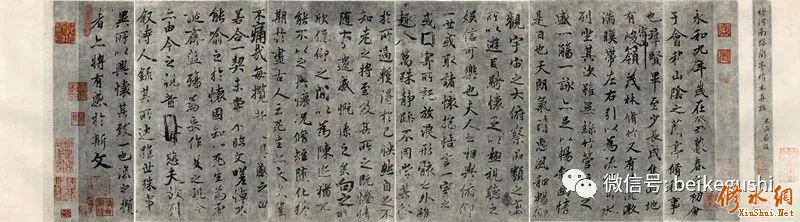 褚河南臨蘭亭絹本真跡
永和九年歲在癸丑暮春之初會
于會稽山陰之蘭亭脩稧事
也群賢畢至少長咸集此地
有峻領茂林脩竹又有清流激
湍暎帶左右引以為流觴曲水
列坐其次雖無絲竹管弦之
盛一觴一詠亦足以暢敘幽情
是日也天朗氣清惠風和暢仰
觀宇宙之大俯察品類之盛
所以遊目騁懷足以極視聽之
娛信可樂也夫人之相與俯仰
一世或取諸懷抱悟言一室之內
或因寄所託放浪形骸之外雖
趣舍萬殊靜躁不同當其欣
於所遇暫得於己怏然自足不
知老之將至及其所之既惓情
隨事遷感慨係之矣向之所
欣俛仰之間以為陳跡猶不
能不以之興懷況脩短隨化終
期於盡古人云死生亦大矣豈
不痛哉每攬昔人興感之由
若合一契未嘗不臨文嗟悼不
能喻之於懷固知一死生為虛
誕齊彭殤為妄作後之視今
亦由今之視昔悲夫故列
敘時人錄其所述雖世殊事
異所以興懷其致一也後之攬
者亦將有感於斯文
微信号: beikegushi
修水网
XiuShui.Net